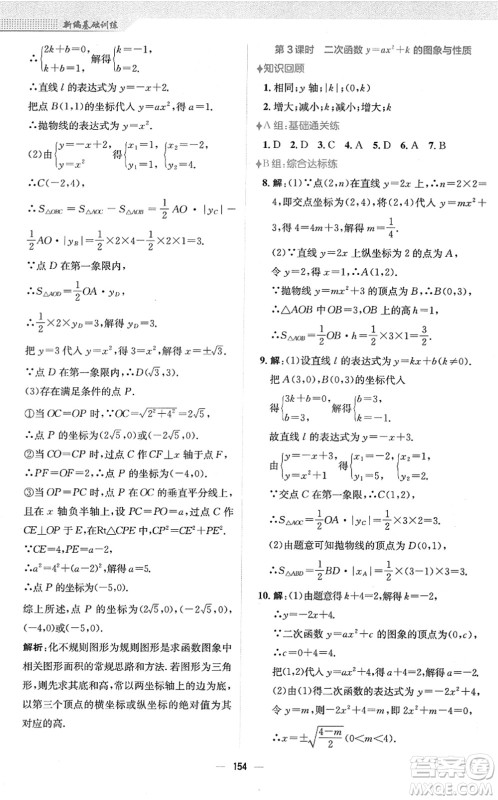 新编基础训练
∴{2k+b=0, k+b=1, 解得{k=-1, b=2.
∴直线 l 的表达式为 y=-x+2.
把点 B(1,1)的坐标代入 y=ax²,得 a=1.
∴抛物线的表达式为 y=x².
(2)由{y=-x+2, y=x², 解得{x=-2, y=4,
∴C(-2,4),
∴S△OBC=S△AOC-S△AOB=1/2 AO·|yC|-
1/2 AO·|yB|=1/2×2×4-1/2×2×1=3.
∵点 D 在第一象限内,
∴S△AOD=1/2 OA·yD,
∴1/2×2×yD=3.解得 yD=3.
把 y=3 代入 y=x²,解得 x=±√3.
∵点 D 在第一象限,
∴点 D 的坐标为(√3,3).
(3)存在满足条件的点 P.
①当 OC=OP 时,∵OC=√(2²+4²)=2√5,
∴点 P 的坐标为(2√5,0)或(-2√5,0).
②当 CO=CP 时,过点 C 作 CF⊥x 轴于点 F,
∴PF=OF=2.∴点 P 的坐标为(-4,0).
③当 PC=PO 时,作 OC 的垂直平分线,
且与 x 轴负半轴交于点 P,过点 C 作
CE⊥OP 于点 E,在 Rt△CPE 中,CP²=CE²+PE².
∵CE=4,∴设 OP=CP=a,PE=a-2.
∴a²=4²+(a-2)²,解得 a=5,
∴点 P 的坐标为(-5,0).
综上所述,点 P 的坐标为(2√5,0)或(-2√5,0)或
(-4,0)或(-5,0).
解析:化不规则图形为规则图形是求函数图象中
相关图形面积的常规思路和方法.因此在求三角
形面积时,可把三角形的一边转化到坐标轴上,从
而这个顶点的横坐标或纵坐标的绝对值为其
对应的高.
第 3 课时 二次函数 y=ax²+k 的图象与性质
知识回顾
1. 相同;y 轴;|k|;(0,k)
2. 增大;减小;k;减小;增大;k
A 组:基础通关练
1. D 2. D 3. C 4. A 5. D 6. A 7. B
B 组:综合达标练
8. 解:(1)∵点(2,n)在直线 y=2x 上,∴n=2×2=
4,即交点坐标为(2,4),则 4=m×2²+3,m=1/4.
(2)∵直线 y=2x 上纵坐标为 2 的点为 A,
∴2=2x,即 x=1,∴A(1,2).
∵抛物线 y=mx²+3 的顶点为 B,∴B(0,3).
∴△AOB 中 OB=3,OB 上的高 h=1,
∴S△AOB=1/2 OB·h=1/2×3×1=3/2.
9. 解:(1)设直线 l 的表达式为 y=kx+b(k≠0).
把 A(3,0),B(0,3)的坐标代入,
得{3k+b=0, b=3, 解得{k=-1, b=3.
故直线 l 的表达式为 y=-x+3.
由{y=-x+3, y=x²+1, 解得{x₁=1, y₁=2, {x₂=-2, y₂=5.
∵交点 C 在第一象限,∴C(1,2).
∴S△AOC=1/2×3×2=3.
(2)由题意可知抛物线的顶点 D 的坐标为(0,-3).
∴S△ABD=1/2 BD·|xA|=1/2×(3+3)×3=9.
10. 解:(1)由题意得 k+4=0,解得 k=-4.
∴y=-2x²+4.
∵二次函数 y=ax²+c 的图象的顶点为(0,4),
∴c=4.
把(1,2)代入 y=ax²+4,得 a+4=2,解得 a=-2.
(2)由(1)得二次函数的表达式为 y=-2x²+4.
当 y=m 时,-2x²+4=m,
∴x=±√((4-m)/2)(0<m<4).
154